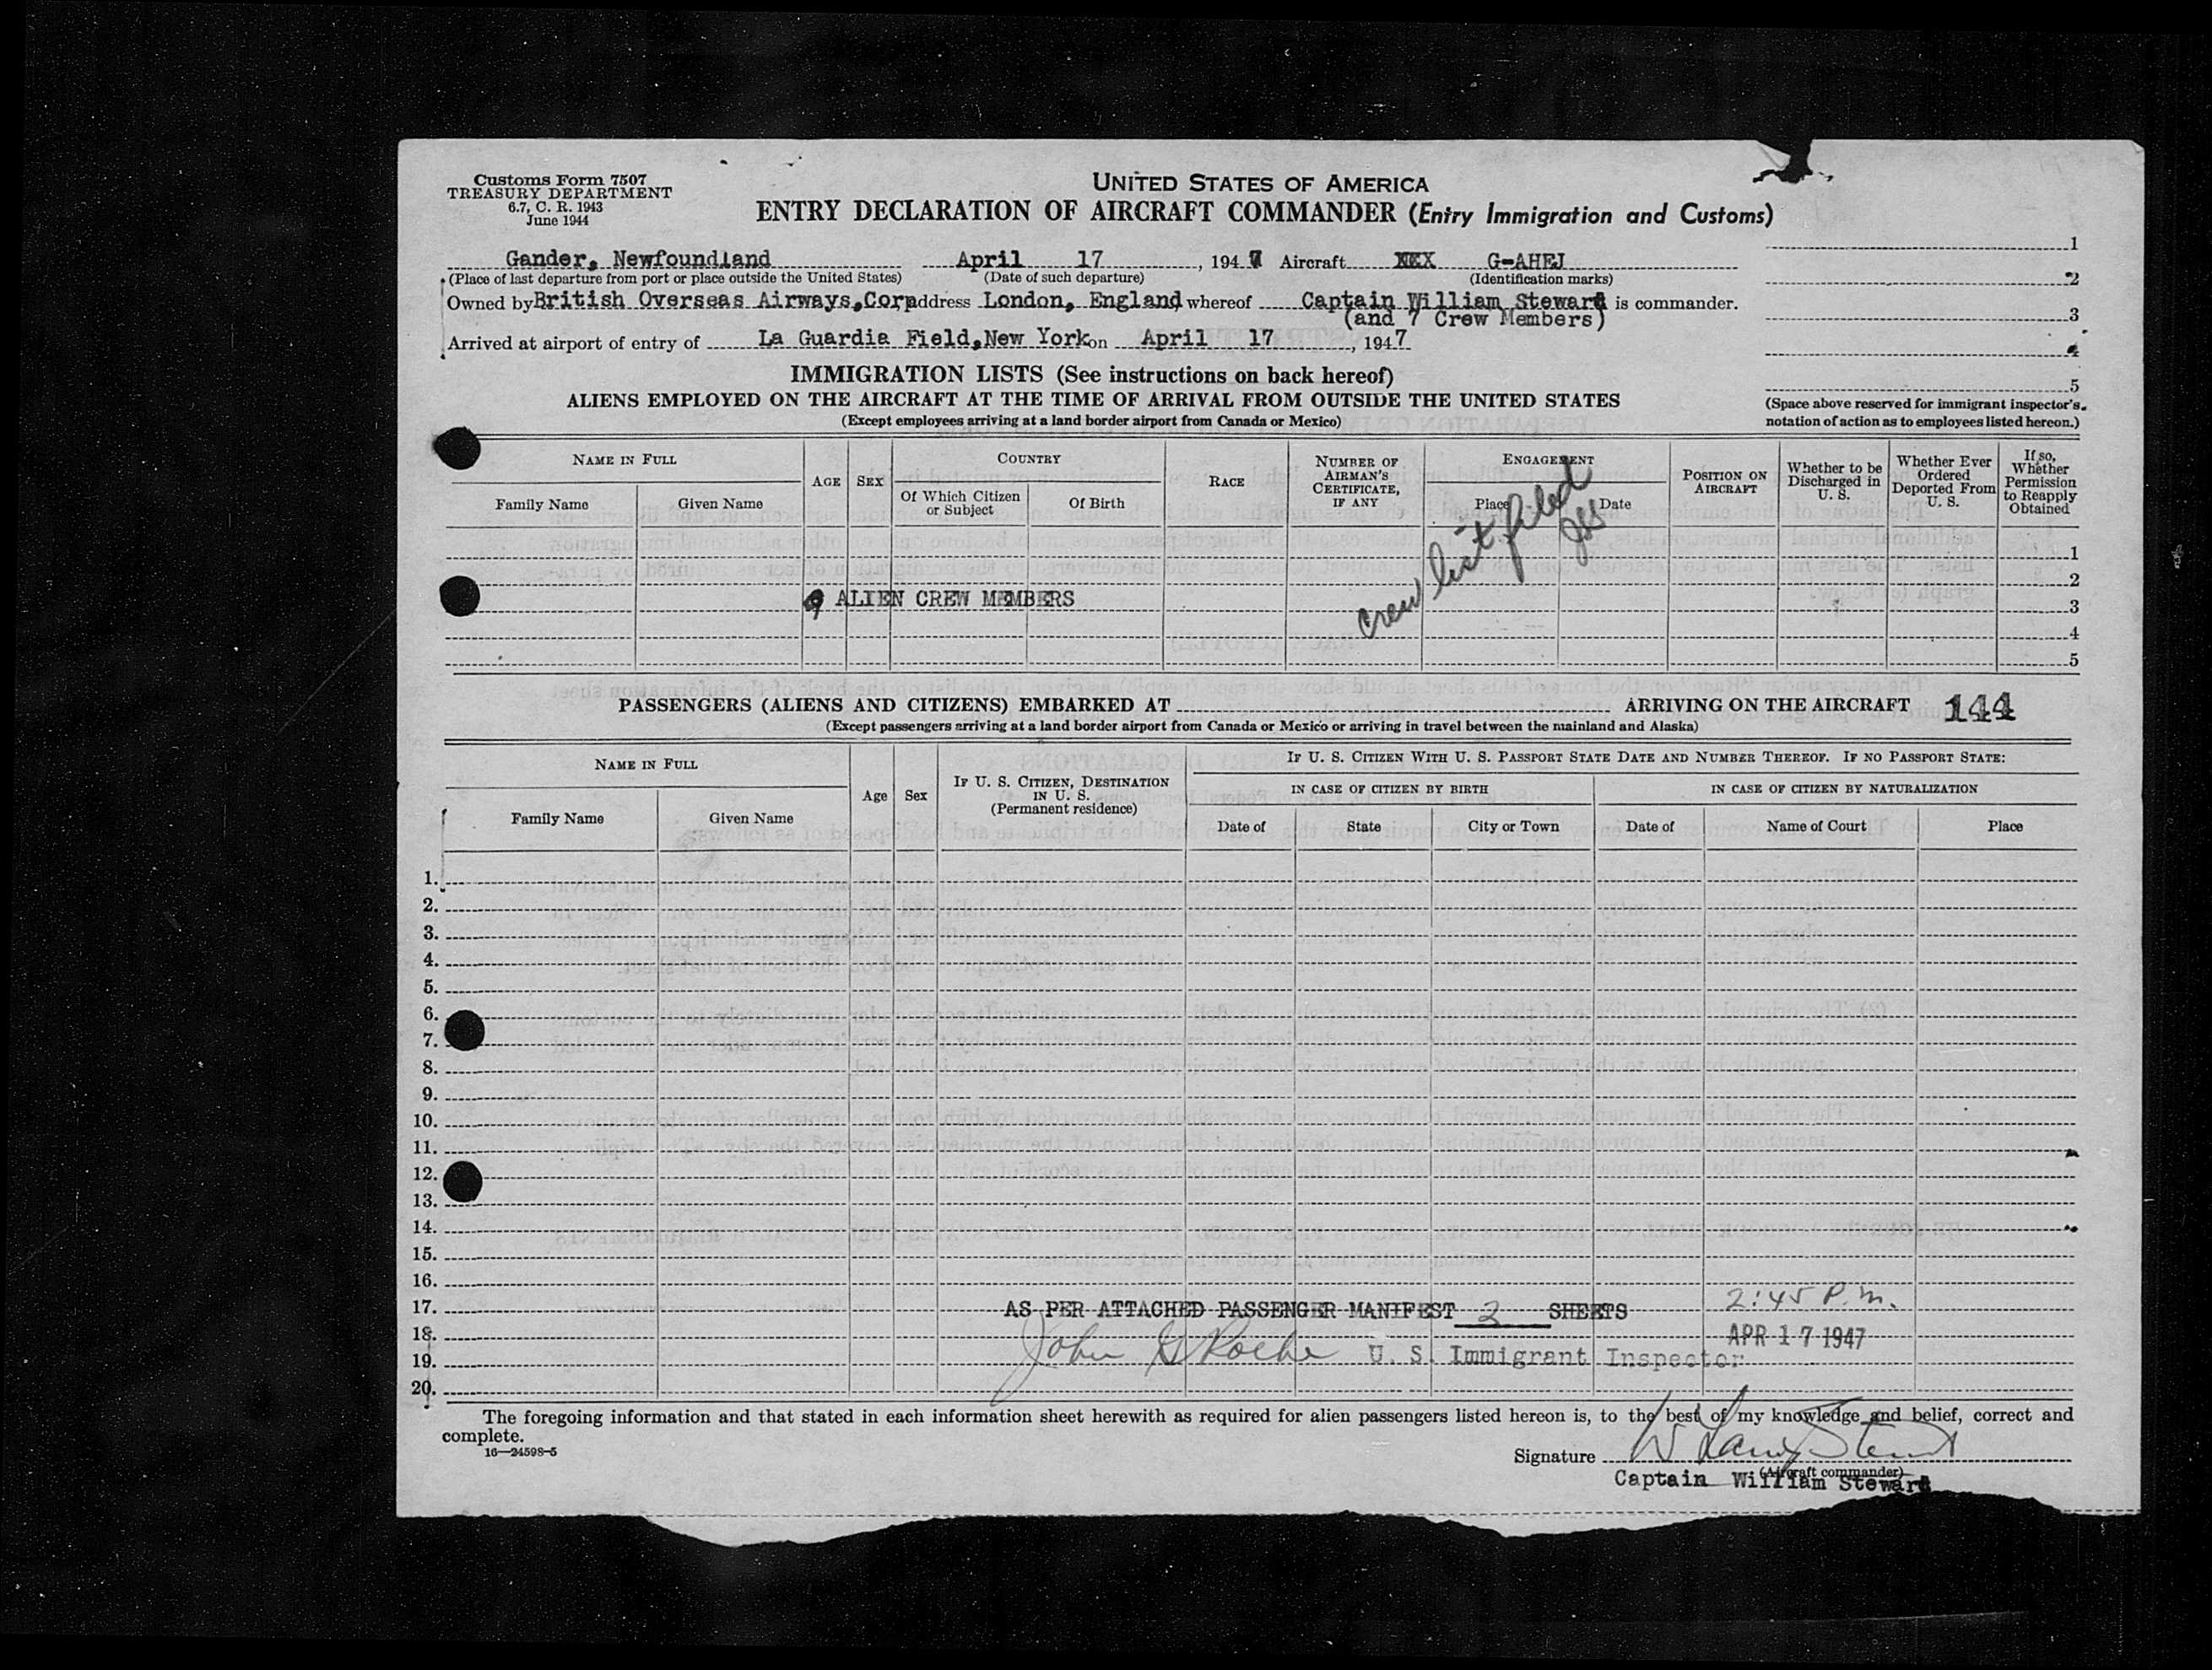 Customs Form 7507
TREASURY DEPARTMENT
6.7, C. R. 1943
June 1944
UNITED STATES OF AMERICA
ENTRY DECLARATION OF AIRCRAFT COMMANDER (Entry Immigration and Customs)
Gander, Newfoundland April 17, 1947 Aircraft G-AHEJ
(Place of last departure from port or place outside the United States) (Date of such departure) (Identification marks)
Owned by British Overseas Airways,Corp address London, England whereof Captain William Stewart is commander.
(and 7 Crew Members)
Arrived at airport of entry of La Guardia Field,New York on April 17, 1947
1
2
3
4
5
(Space above reserved for immigrant inspector's
notation of action as to employees listed hereon.)
IMMIGRATION LISTS (See instructions on back hereof)
ALIENS EMPLOYED ON THE AIRCRAFT AT THE TIME OF ARRIVAL FROM OUTSIDE THE UNITED STATES
(Except employees arriving at a land border airport from Canada or Mexico)
NAME IN FULL
Family Name Given Name
AGE SEX
COUNTRY
Of Which Citizen or Subject
Of Birth
RACE
NUMBER OF AIRMAN'S CERTIFICATE, IF ANY
ENGAGEMENT
Place Date
POSITION ON AIRCRAFT
Whether to be Discharged in U. S.
Whether Ever Ordered Deported From U. S.
If so, Whether Permission to Reapply Obtained
crew list filed
1
2
9 ALIEN CREW MEMBERS 3
4
5
PASSENGERS (ALIENS AND CITIZENS) EMBARKED AT ARRIVING ON THE AIRCRAFT 144
(Except passengers arriving at a land border airport from Canada or Mexico or arriving in travel between the mainland and Alaska)
NAME IN FULL
Family Name Given Name
Age Sex
IF U. S. CITIZEN, DESTINATION IN U. S.
(Permanent residence)
IF U. S. CITIZEN WITH U. S. PASSPORT STATE DATE AND NUMBER THEREOF. IF NO PASSPORT STATE:
IN CASE OF CITIZEN BY BIRTH IN CASE OF CITIZEN BY NATURALIZATION
Date of State City or Town Date of Name of Court Place
1.
2.
3.
4.
5.
6.
7.
8.
9.
10.
11.
12.
13.
14.
15.
16.
17. AS PER ATTACHED PASSENGER MANIFEST 2 SHEETS 2:45 P.m.
18. APR 17 1947
19. John G Roche U. S. Immigrant Inspector
20.
The foregoing information and that stated in each information sheet herewith as required for alien passengers listed hereon is, to the best of my knowledge and belief, correct and
complete.
16—24598-5
Signature
(Aircraft commander)
Captain William Stewart